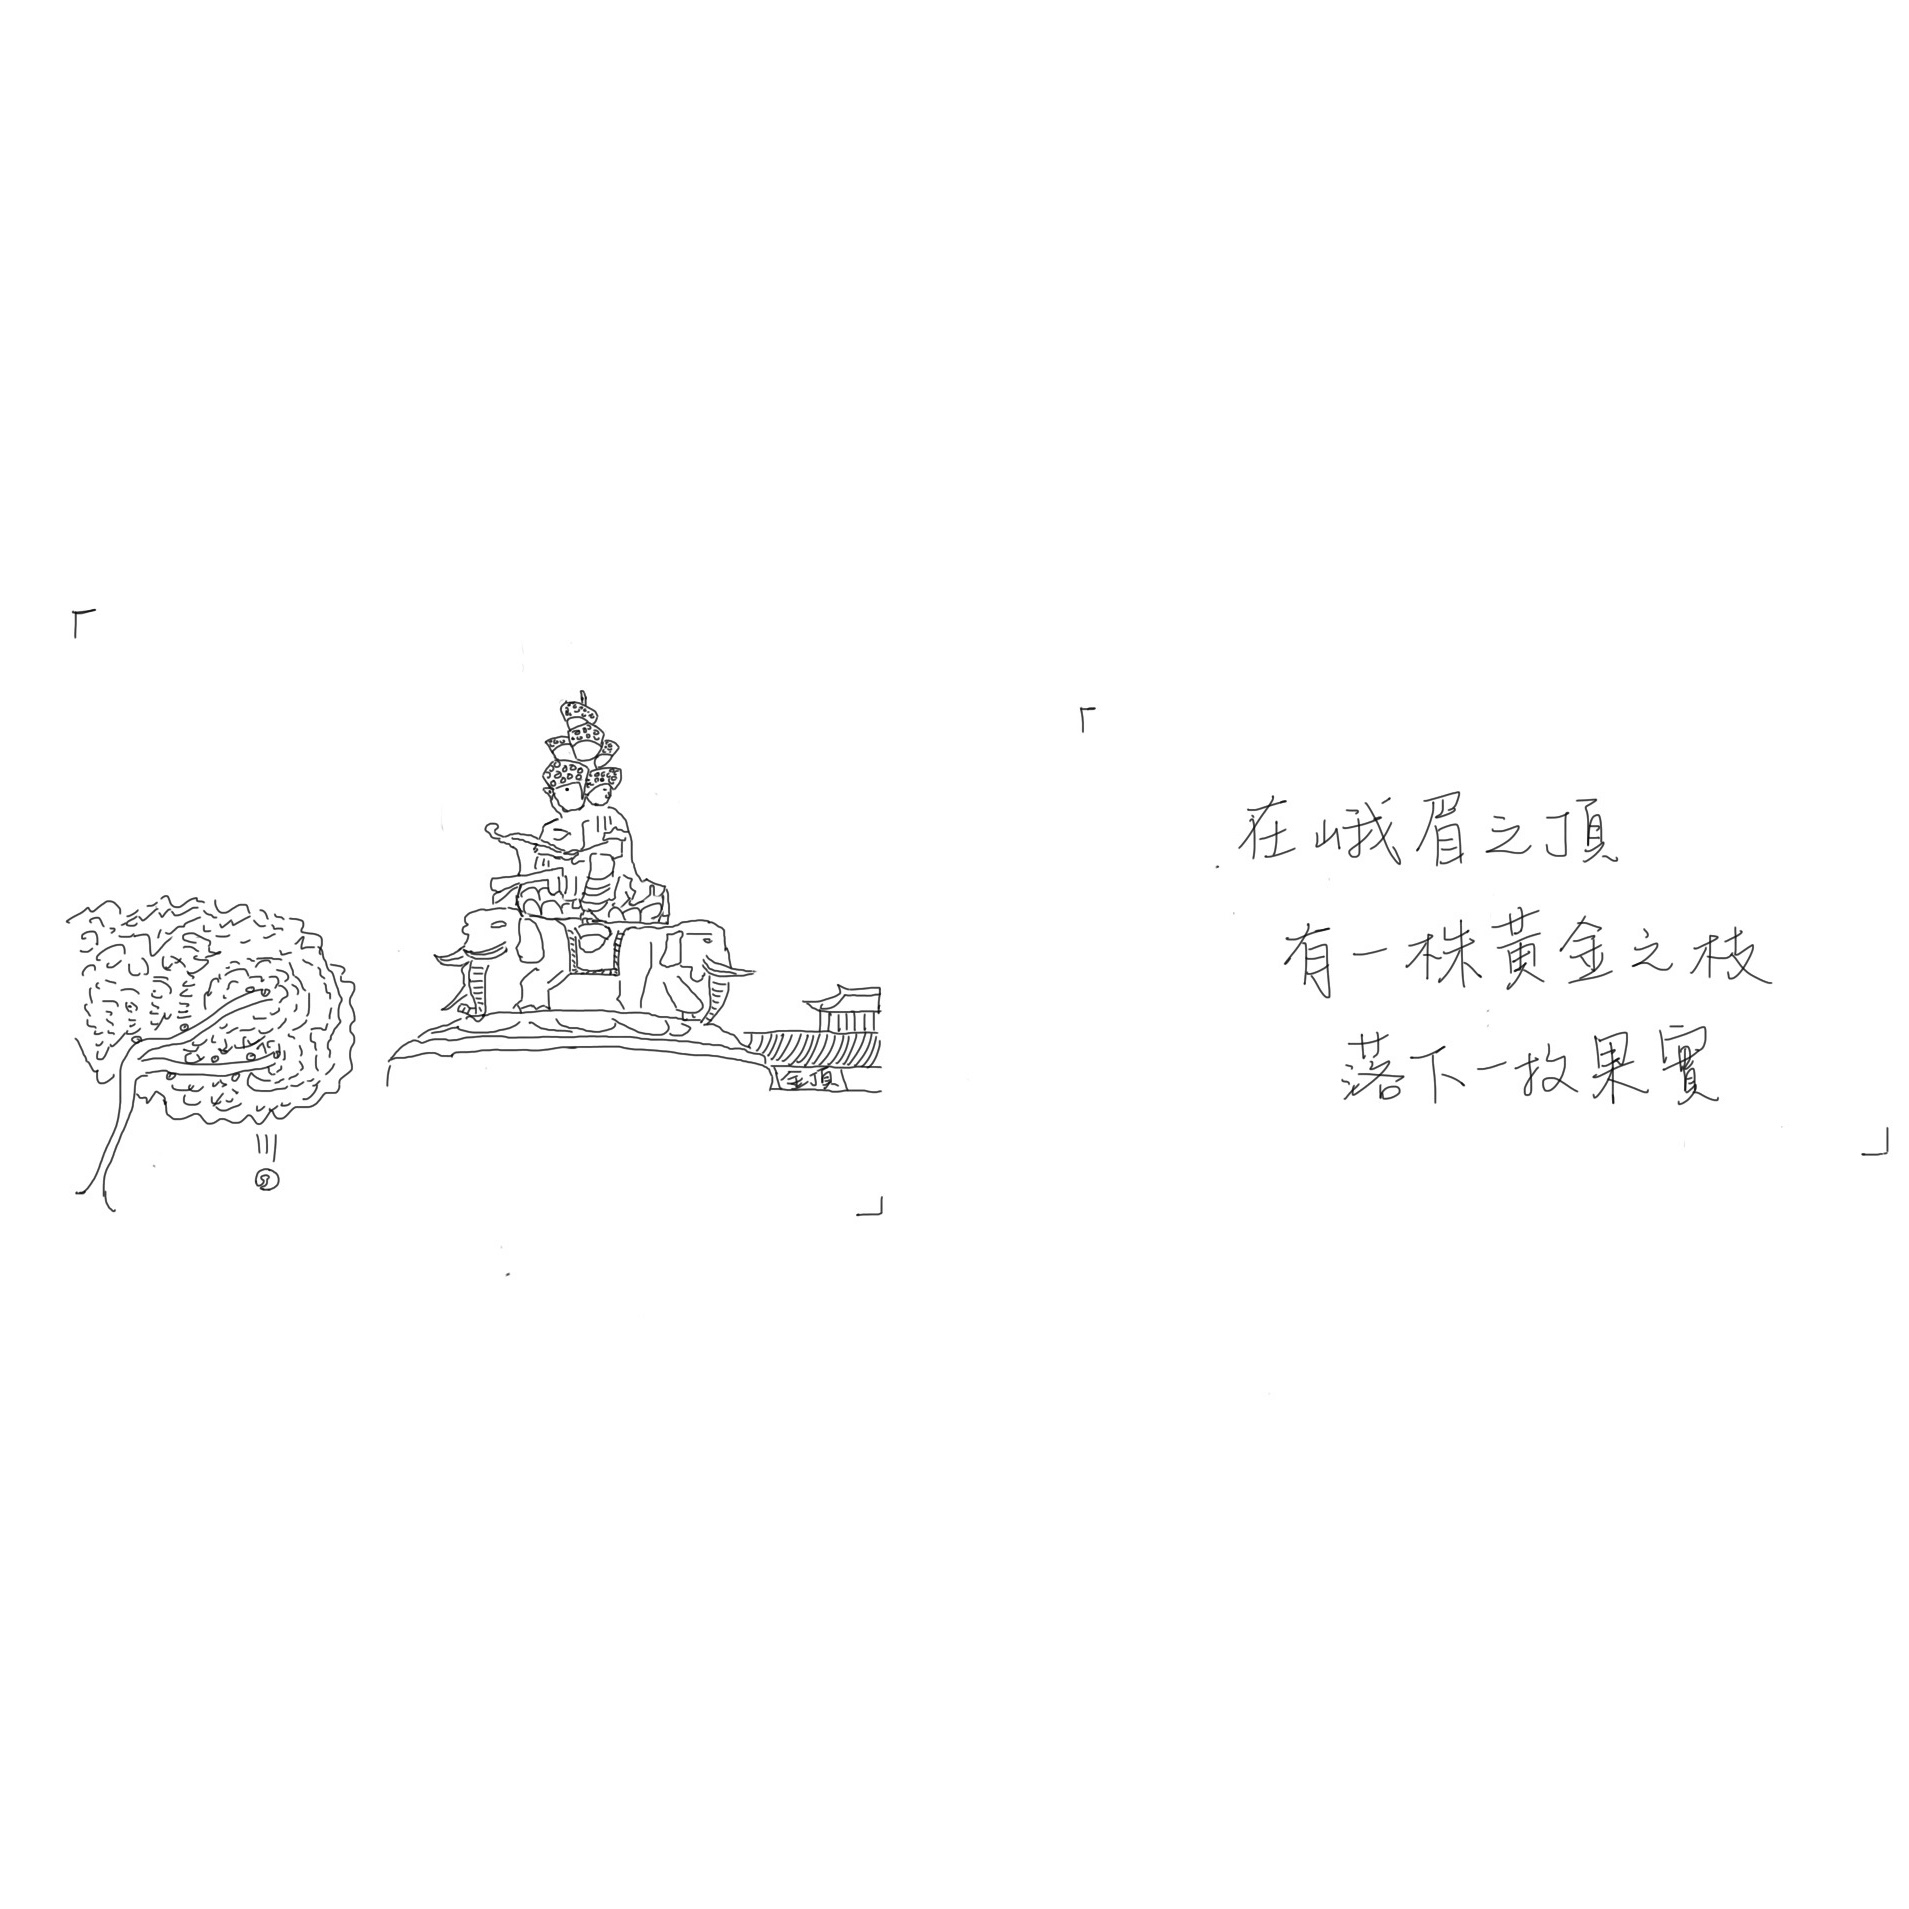 金頂
「
在峨眉之頂
有一株黃金之枝
落下一枚果實
」